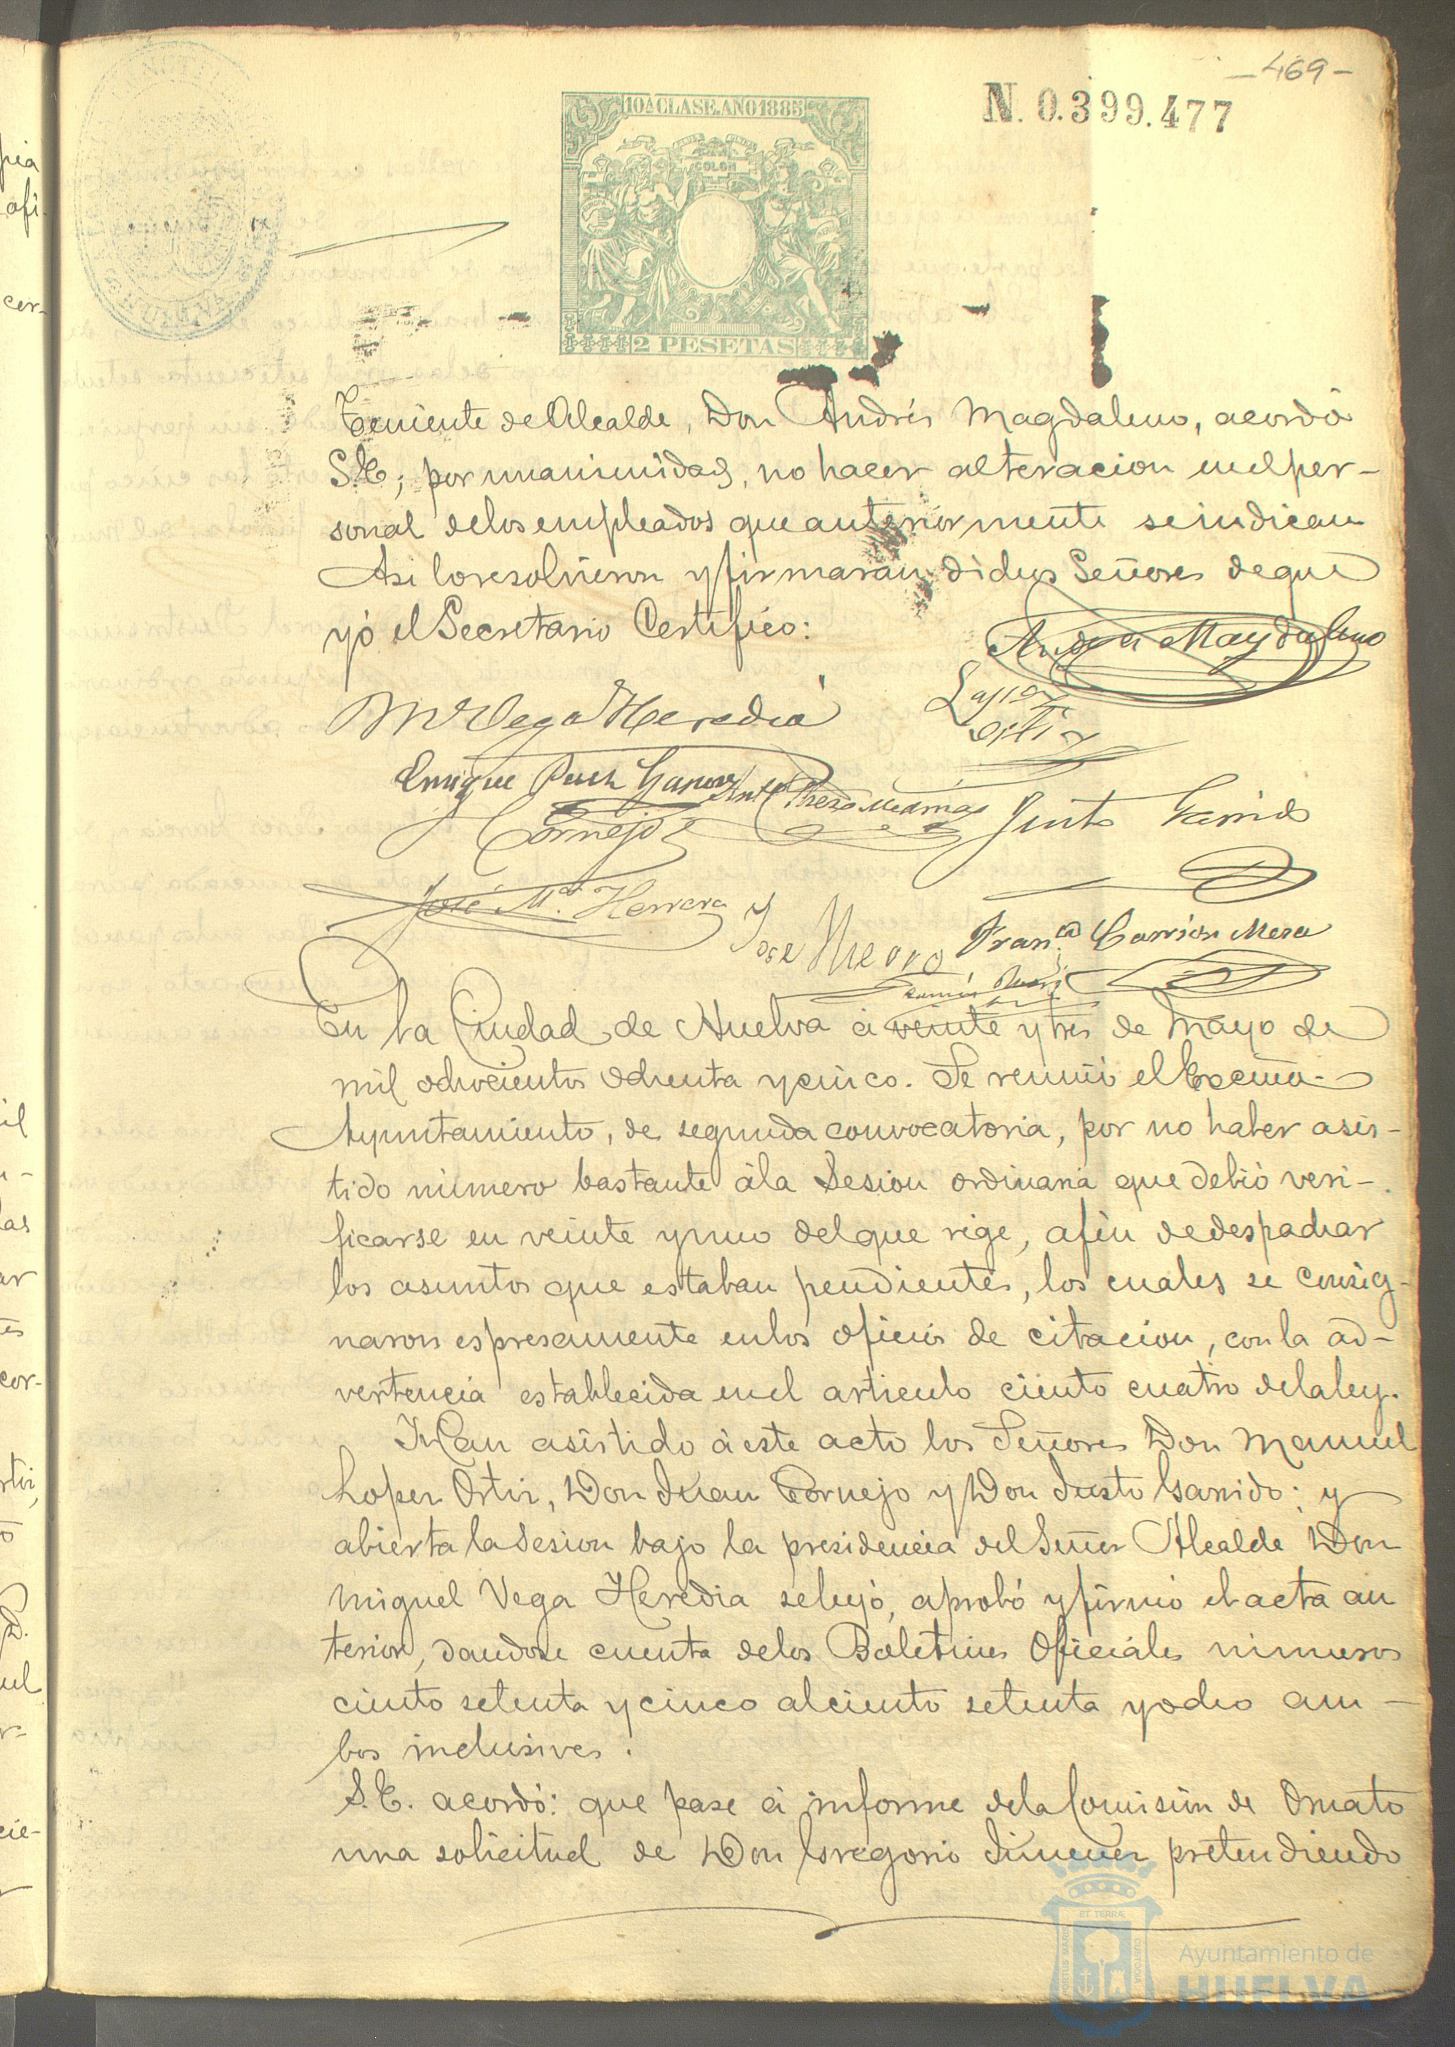 - 469 -
N. 0.399.477
10ª CLASE. AÑO 1885
COLON
2 PESETAS
Teniente de Alcalde, Don Andrés Magdaleno, acordó
S.E; por unanimidad, no hacer alteracion en el per-
sonal de los empleados que anteriormente se indican
Asi lo resolvieron y firmaran dichos Señores de que
yó el Secretario Certifico:
Andres Magdaleno
M Vega Heredia
Lopez
Ortiz
Enrique Garcia
Cornejo
Justo Garrido
José Mª Herrera
Franco Carrion Mesa
En la Ciudad de Huelva á veinte y tres de Mayo de
mil ochocientos ochenta y cinco. Se reunió el Excmo
Ayuntamiento, de segunda convocatoria, por no haber asis-
tido número bastante á la Sesion ordinaria que debió veri-
ficarse en veinte y uno del que rige, afin de despachar
los asuntos que estaban pendientes, los cuales se consig-
naron espresamente en los oficios de citacion, con la ad-
vertencia establecida en el articulo ciento cuatro de la ley.
Han asistido á este acto los Señores Don Manuel
Lopez Ortiz, Don Juan Cornejo y Don Justo Garrido; y
abierta la Sesion bajo la presidencia del Señor Alcalde Don
Miguel Vega Heredia se leyó, aprobó y firmó el acta an
terior, dandose cuenta de los Boletines Oficiales numeros
ciento setenta y cinco al ciento setenta y ocho am-
bos inclusives.
S.E. acordó: que pase á informe de la Comisión de Ornato
una solicitud de Don Gregorio Jimenez pretendiendo
Ayuntamiento de
HUELVA